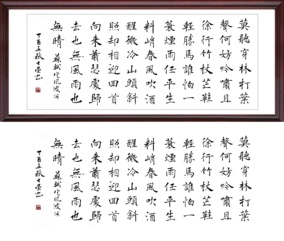 莫聽穿林打葉
聲何妨吟嘯且
徐行竹杖芒鞋
輕勝馬誰怕一
蓑煙雨任平生
料峭春風吹酒
醒微冷山頭斜
照却相迎回首
向來蕭瑟處歸
去也無風雨也
無晴 蘇軾定風波
丁酉
莫聽穿林打葉
聲何妨吟嘯且
徐行竹杖芒鞋
輕勝馬誰怕一
蓑煙雨任平生
料峭春風吹酒
醒微冷山頭斜
照却相迎回首
向來蕭瑟處歸
去也無風雨也
無晴 蘇軾定風波
丁酉